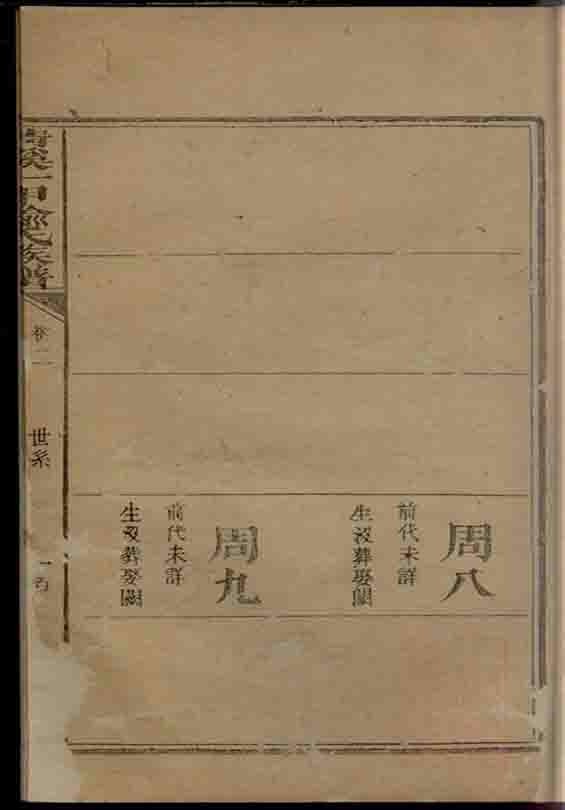 周八
前代未詳
生歿葬娶闕
周九
前代未詳
生歿葬娶闕
溪一甲俞氏族譜
卷二
世系